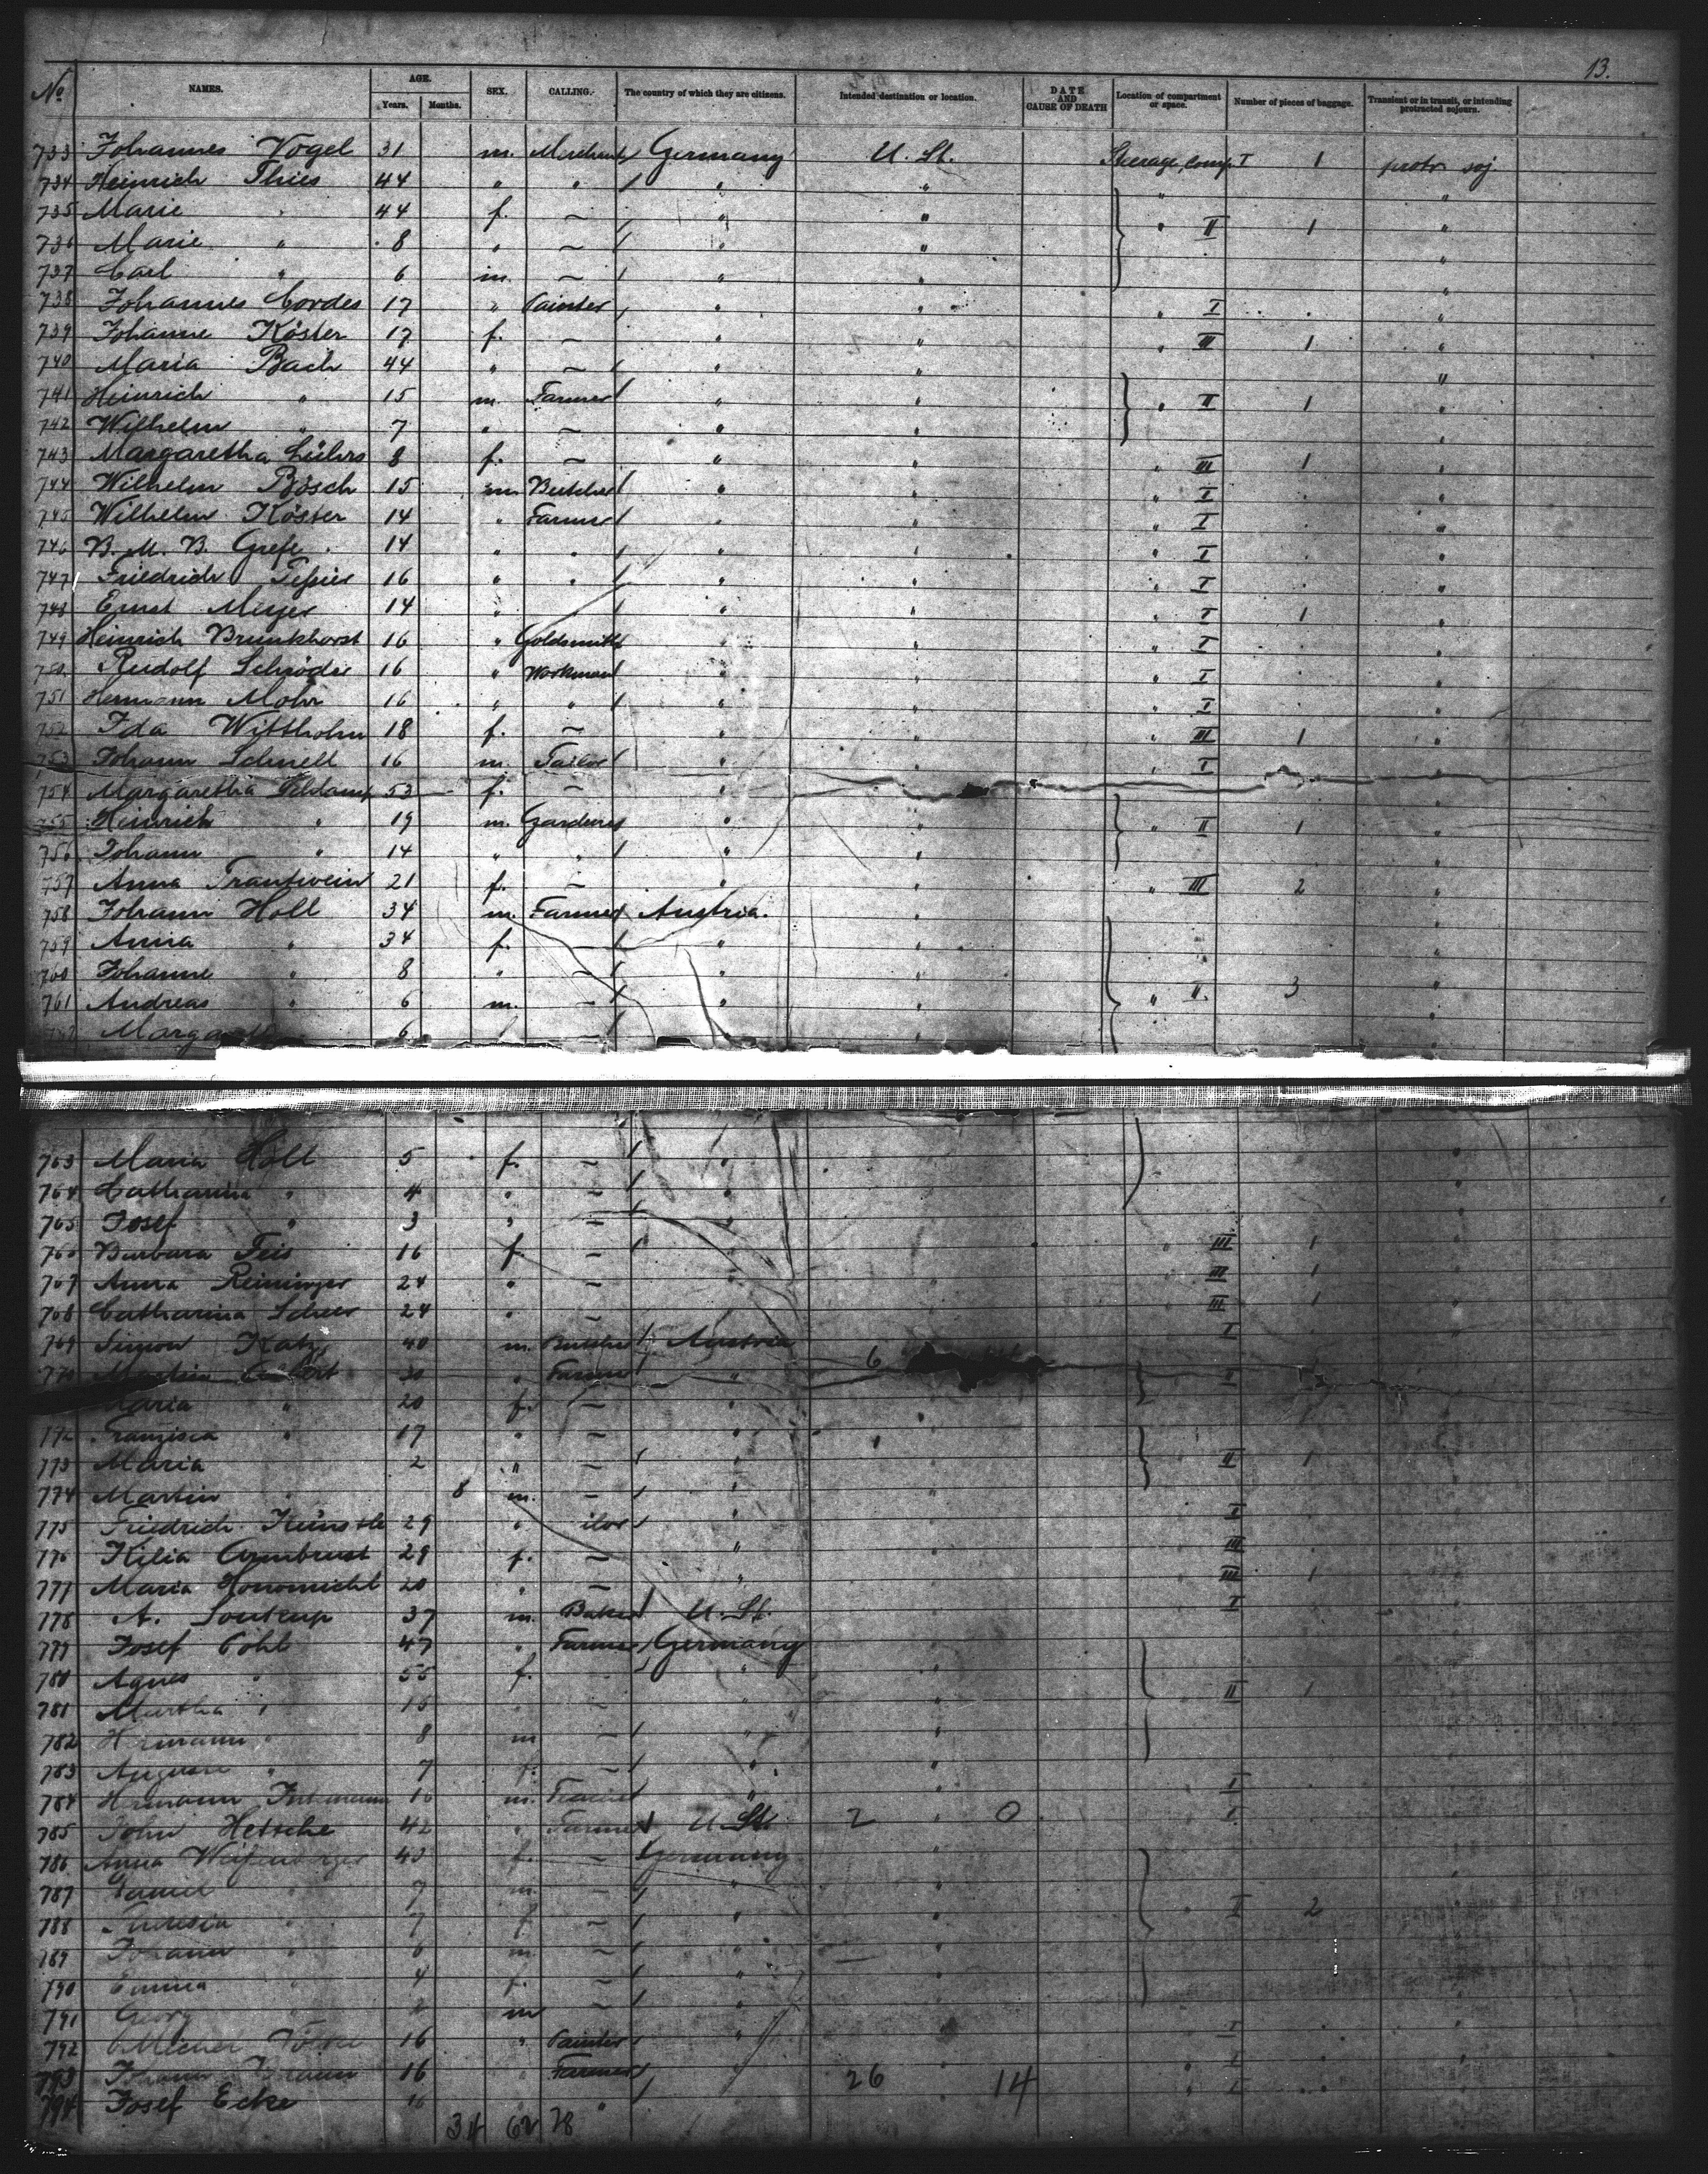 13.
No NAMES. AGE. Years. Months. SEX. CALLING. The country of which they are citizens. Intended destination or location. DATE AND CAUSE OF DEATH Location of compartment or space. Number of pieces of baggage. Transient or in transit, or intending protracted sojourn.
733 Johannes Vogel 31 m. Merchant Germany U. St. Steerage, comp. I 1 protr. soj.
734 Heinrich Thies 44 " " " " " "
735 Marie " 44 f. – " " " II 1 "
736 Marie " 8 " – " " "
737 Carl " 6 m. – " " "
738 Johannes Cordes 17 " Painter " " " I "
739 Johanne Köster 17 f. – " " " III 1 "
740 Maria Bach 44 " – " " "
741 Heinrich " 15 m. Farmer " " " II 1 "
742 Wilhelm " 7 " – " " "
743 Margaretha Lührs 8 f. – " " " III 1 "
744 Wilhelm Bösch 15 m. Butcher " " " I "
745 Wilhelm Köster 14 " Farmer " " " I "
746 B. M. B. Grefe 14 " " " " " I "
747 Friedrich 16 " " " " " I "
748 Ernst Meyer 14 " " " " I 1 "
749 Heinrich Brunkhorst 16 " Goldsmith " " " I "
750 Rudolf Schröder 16 " Workman " " " I "
751 Hermann Mohr 16 " " " " " I "
752 Ida Wittholm 18 f. – " " " III 1 "
753 Johann Schnell 16 m. Tailor " " " I "
754 Margaretha 53 f. – " " "
755 Heinrich " 19 m. Gardener " " " II 1 "
756 Johann " 14 " " " " "
757 Anna Trautwein 21 f. – " " " III 2 "
758 Johann Holl 34 m. Farmer Austria. " "
759 Anna " 34 f. – " " "
760 Johanne " 8 " – " " "
761 Andreas " 6 m. – " " " II. 3 "
762 6 – " " "
763 Maria Höll 5 f. – " "
764 Catharina " 4 " – " "
765 Josef " 3 " – " "
766 Barbara Feis 16 f. – " " III 1 "
767 Anna Reininger 24 " – " " III 1 "
768 Catharina 24 " – III 1 "
769 Simon Katz 40 m. Butcher Austria I "
770 30 " Farmer " 6 II
Maria " 20 f. – "
772 Franzisca " 17 " – "
773 Maria 2 " – " II 1 "
774 Martin " 8 m. – " "
775 Friedrich 29 " " I "
776 Kilia Armbrust 29 f. – " " III "
777 Maria 20 " – " III 1 "
778 A. 37 m. Baker U. St. I "
779 Josef Pohl 47 " Farmer Germany
780 Agnes " 55 f. " "
781 Martha " 15 " – " " II 1
782 Hermann " 8 m – " "
783 7 f. – " "
784 Hermann 16 m. " " I
785 John Hetsche 42 " Farmer U. St. 2 " 0 I.
786 Anna 40 f. – Germany "
787 " 7 m. – " "
788 Theresia " 7 f – " " II 2
789 Johann " 6 m. – " "
790 Emma " 4 f. – " "
791 Georg " 2 m – " "
792 16 " Painter " I
793 Johann Braun 16 " Farmer " 26 14 I
794 Josef Ecke 16 " I
34 62 78